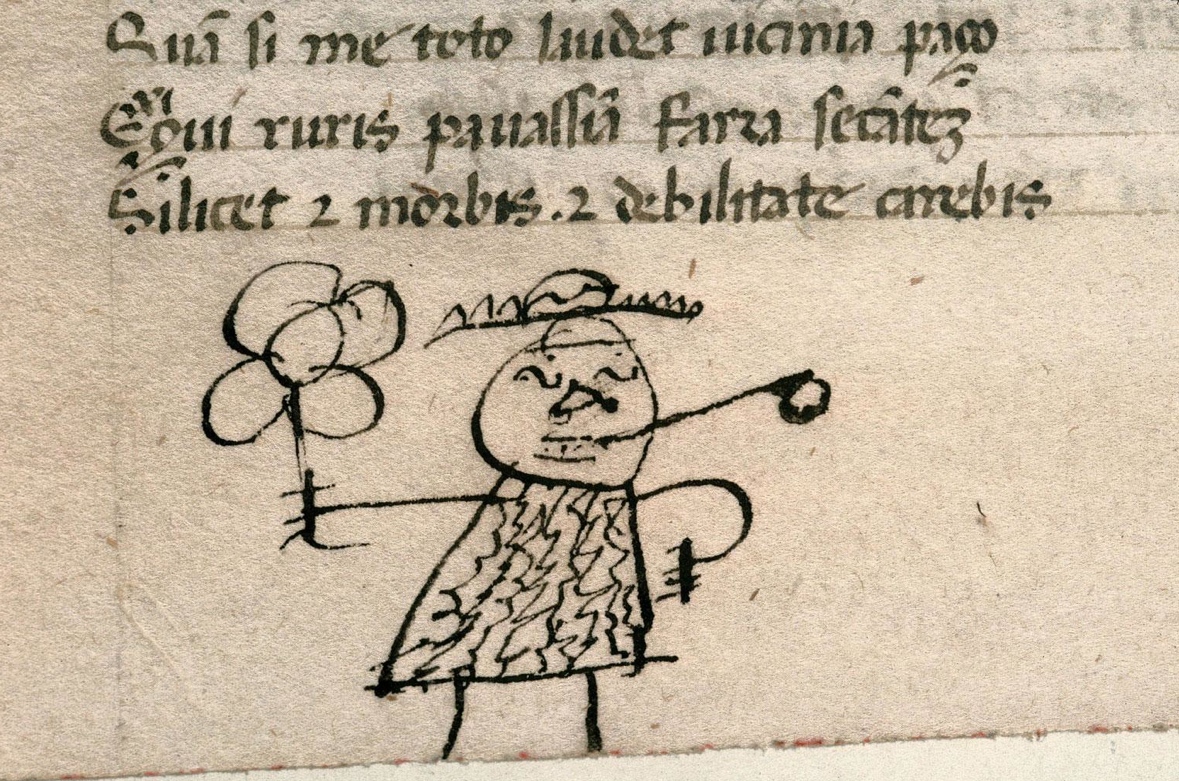 Quā si me toto laudet uicinia pago
Exigui ruris pauassū farra secātez
Silicet 2 morbis . 2 debilitate carebis